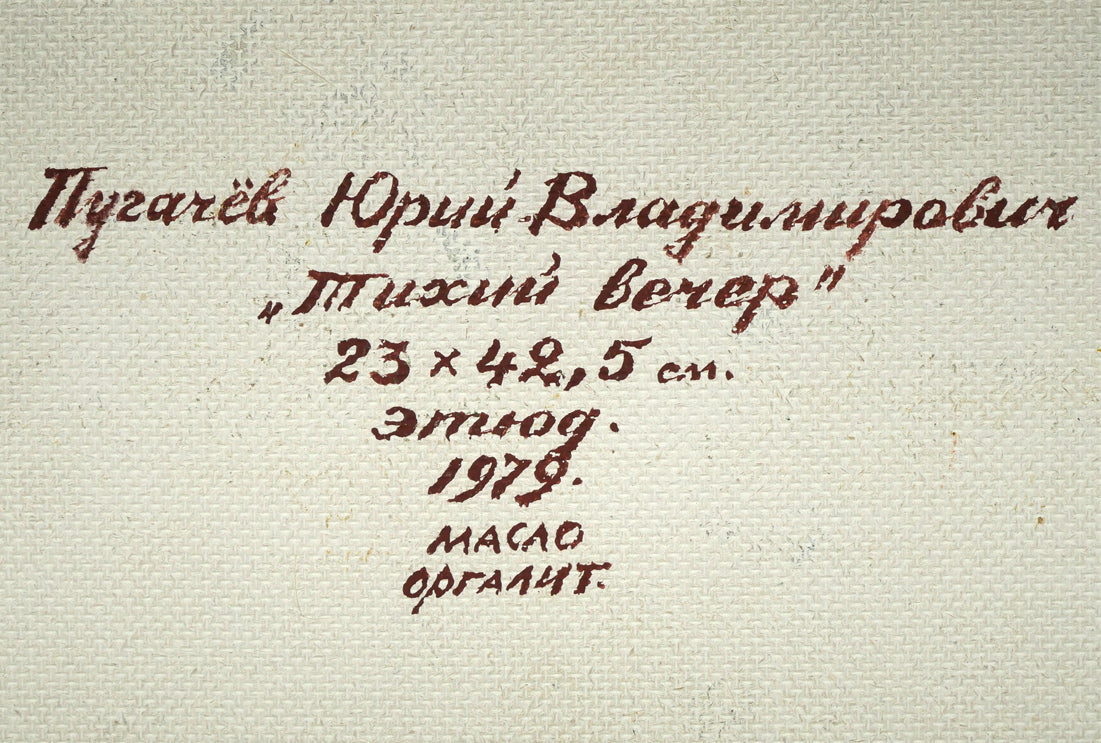 Пугачёв Юрий Владимирович
„Тихий вечер"
23 × 42,5 см.
этюд.
1979.
МАСЛО
ОРГАЛИТ.